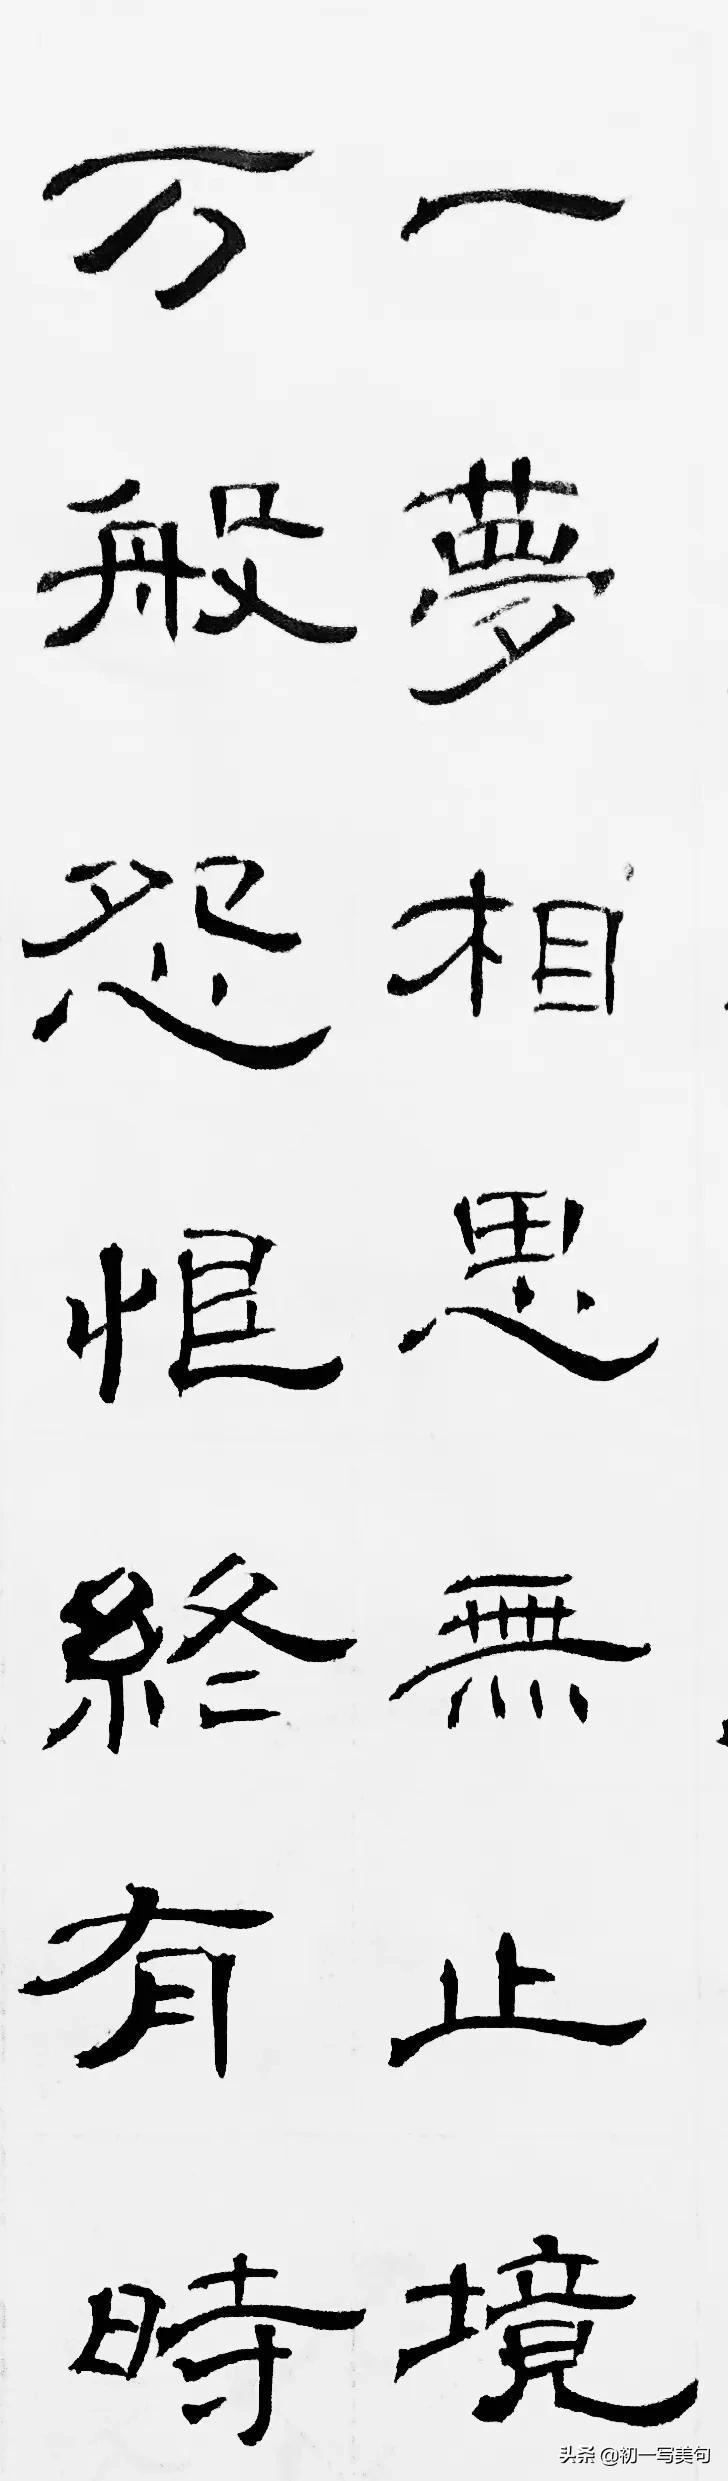 一夢相思無止境
万般怨恨終有時
头条 @初一写美句